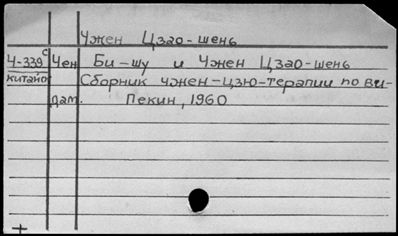 Чжен Цзао-шень
Ч-339с Чен Би-шу и Чжен Цзао-шень
китайс Сборник чжен-цзю-терапии по ви-
дам. Пекин, 1960